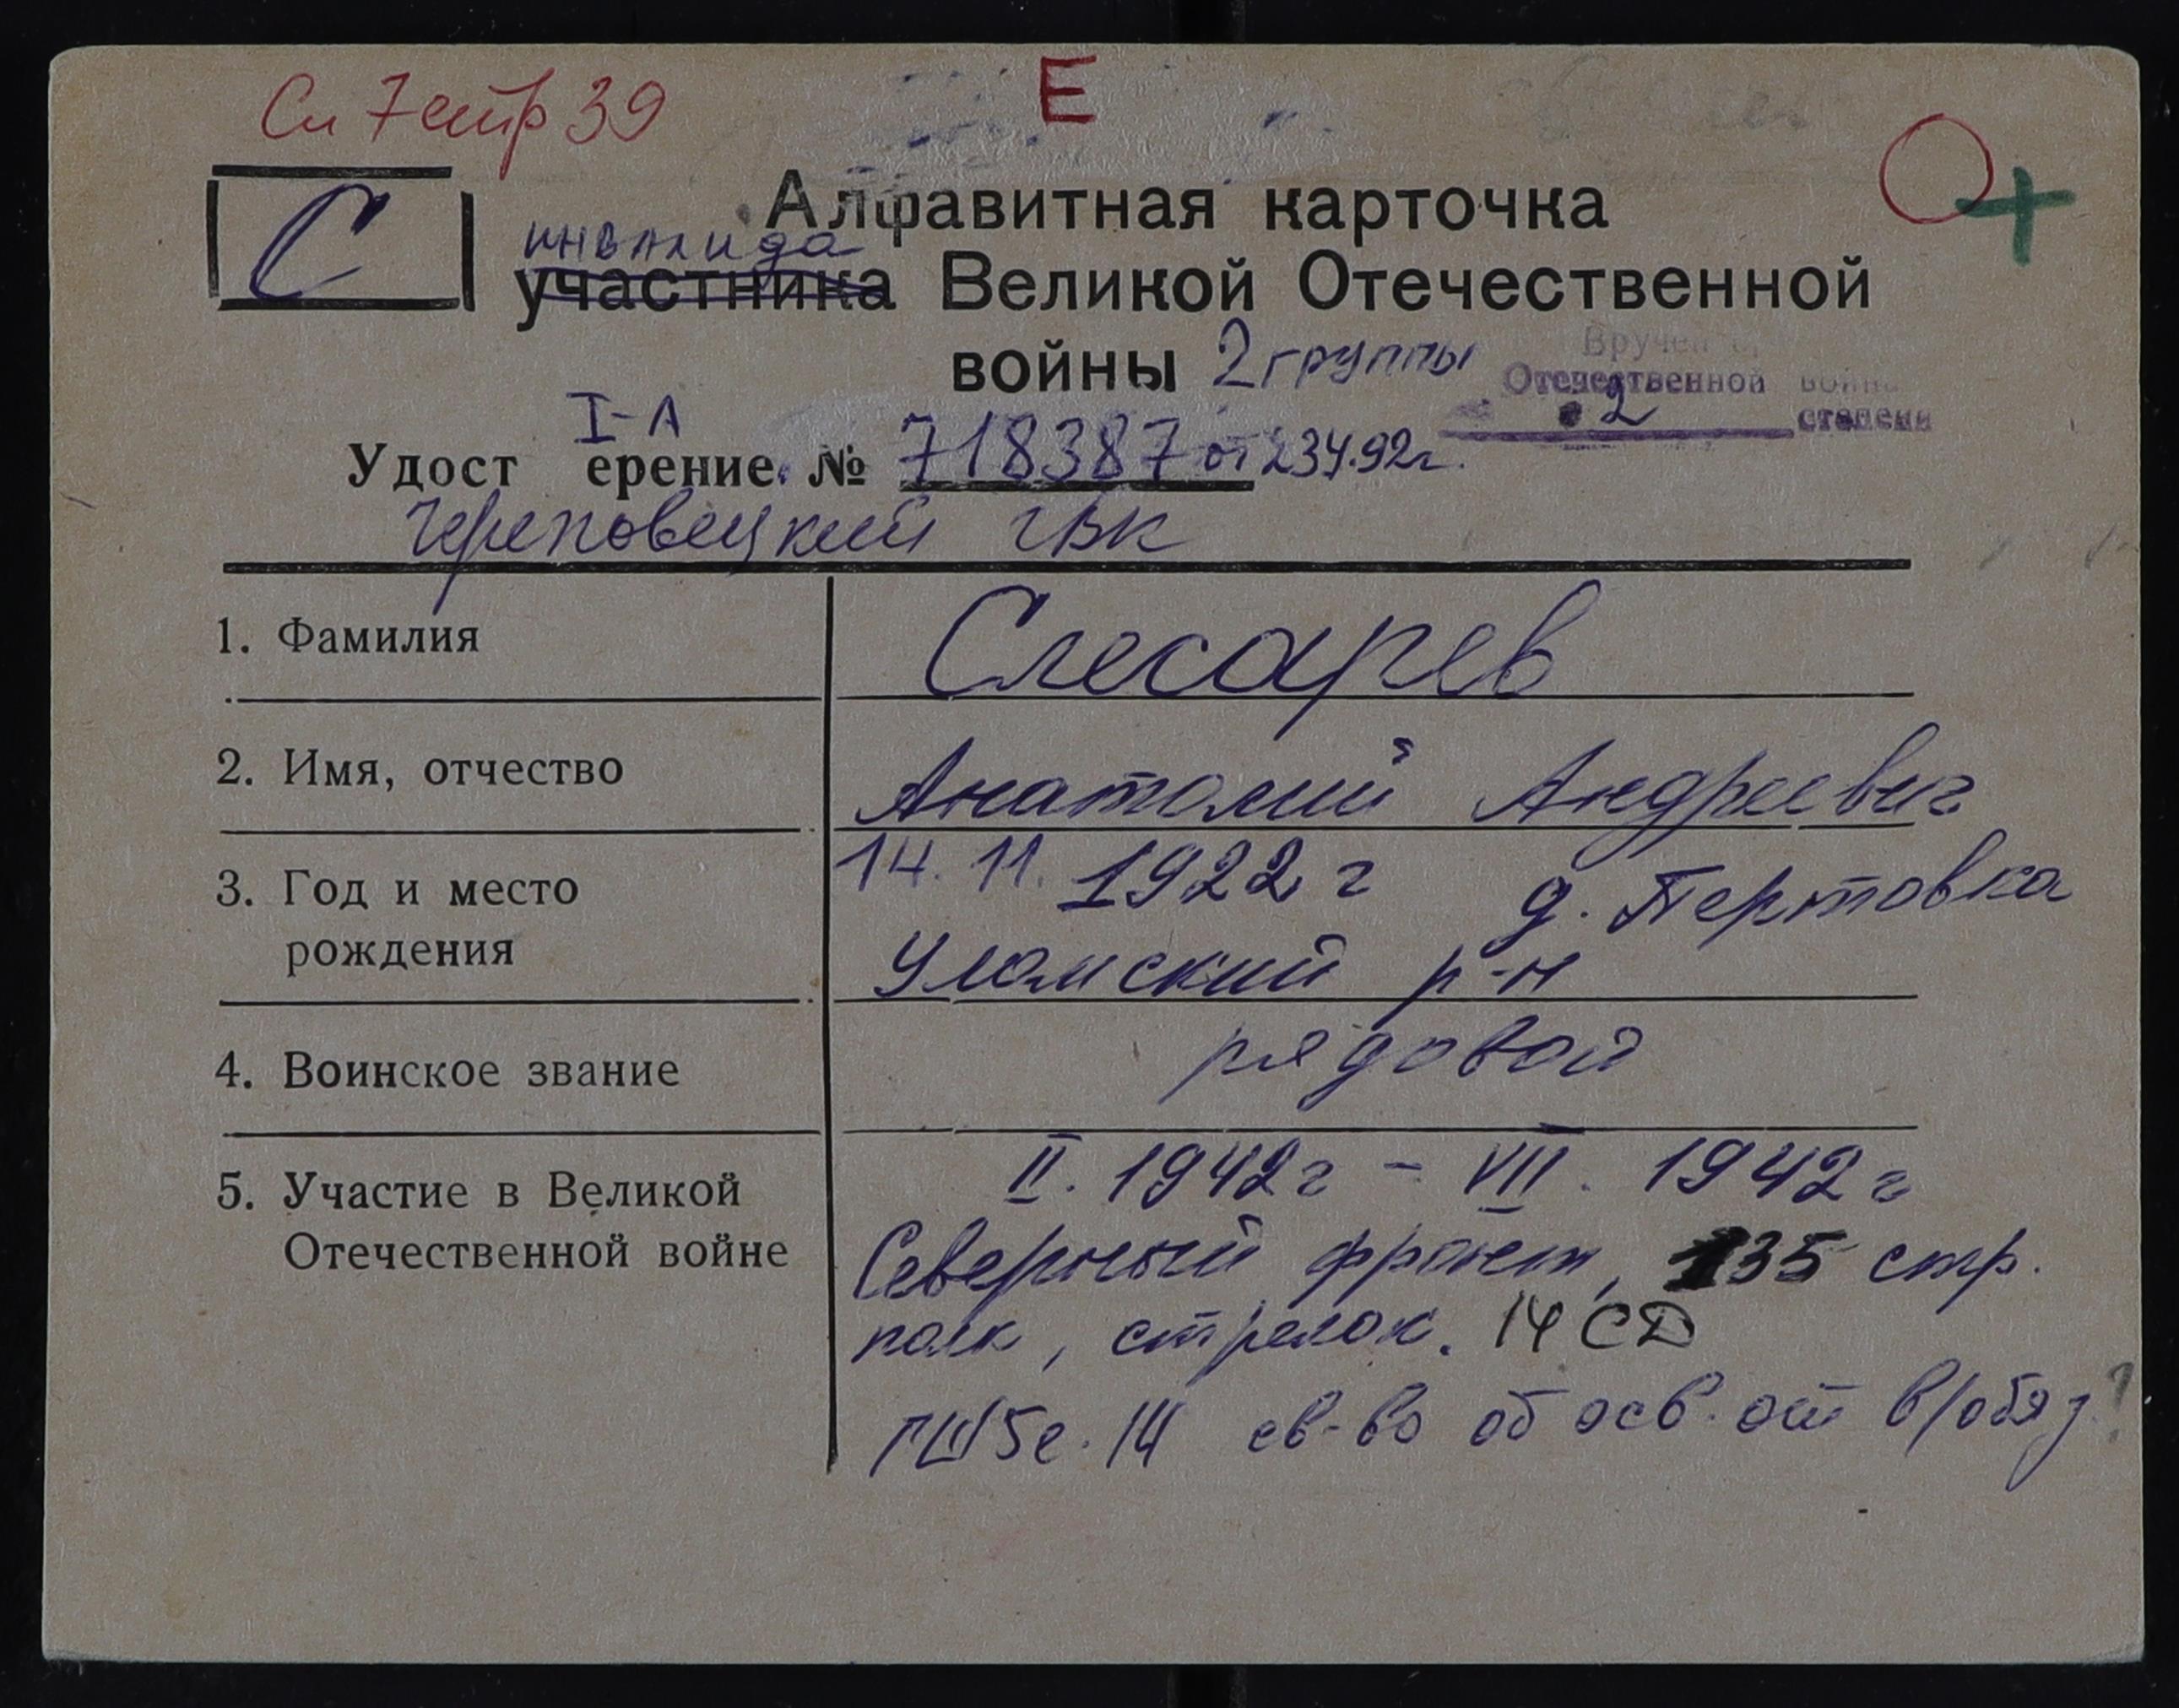 Сп 7 стр 39
Е
С
Алфавитная карточка
инвалида
участника Великой Отечественной
войны 2 группы
Вручен
Отечественной войны
2 степени
I-А
Удост ерение № 718387 от 234.92г.
Череповецкий ГВК
1. Фамилия
Слесарев
2. Имя, отчество
Анатолий Андреевич
3. Год и место
рождения
14. 11. 1922 г д. Пертовка
Уломский р-н
4. Воинское звание
рядовой
5. Участие в Великой
Отечественной войне
II. 1942г - VII. 1942г
Северный фронт, 135 стр.
полк, стрелок. 14 СД
св-во об осв. от в/обяз?